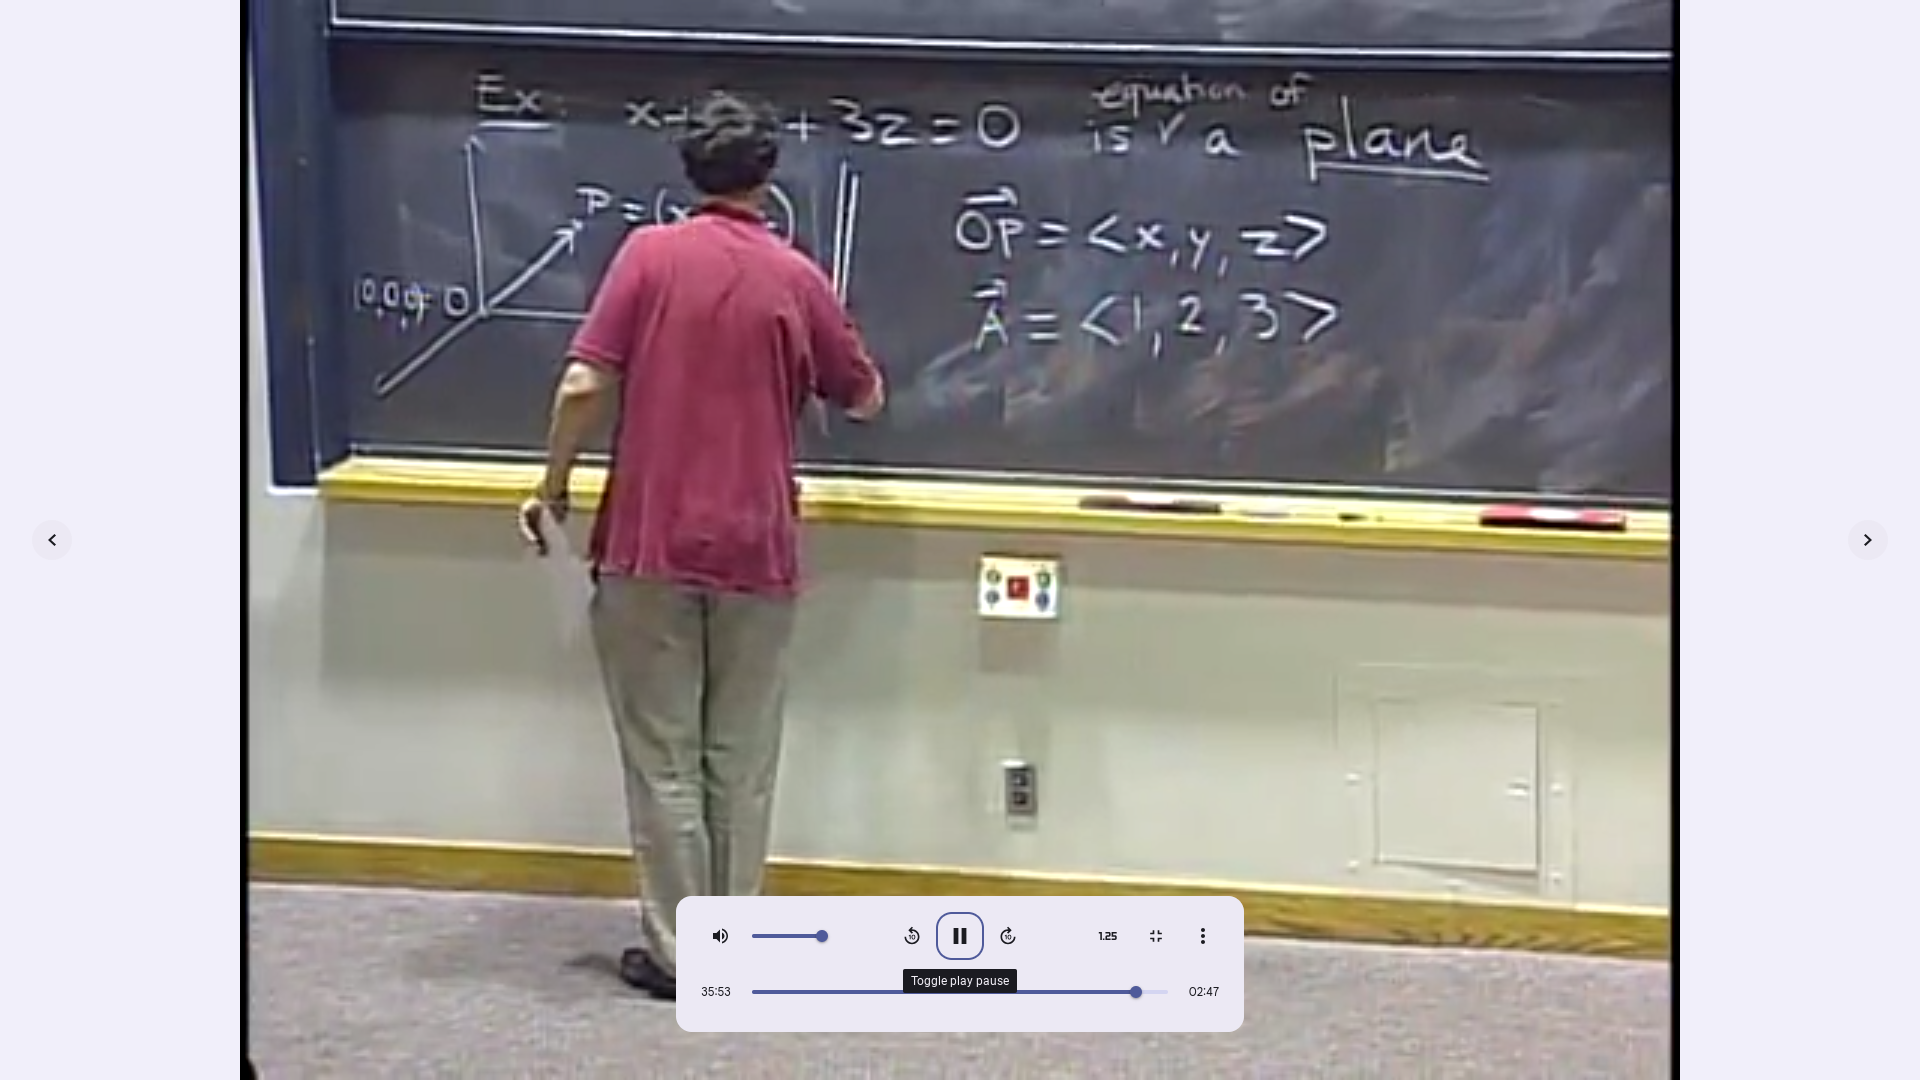 Ex: x + + 3z = 0
equation of
is ✓ a plane
P = (x
OP = <x, y, z>
(0,0,0) = O
A = <1, 2, 3>
1.25
Toggle play pause
35:53
02:47